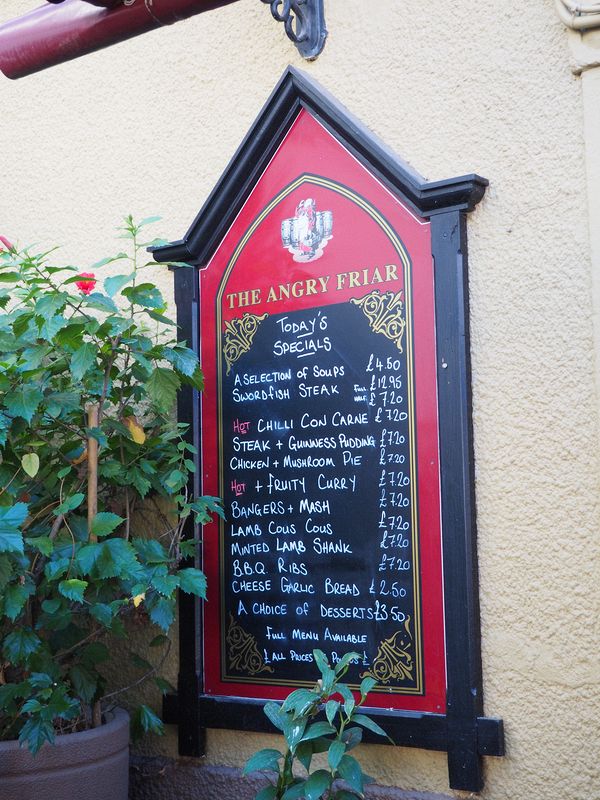 THE ANGRY FRIAR
TODAY'S
SPECIALS
A SELECTION OF SOUPS £4.50
SWORDFISH STEAK FULL £12.95
HALF £7.20
HOT CHILLI CON CARNE £7.20
STEAK + GUINNESS PUDDING £7.20
CHICKEN + MUSHROOM PIE £7.20
HOT + FRUITY CURRY £7.20
BANGERS + MASH £7.20
LAMB COUS COUS £7.20
MINTED LAMB SHANK £7.20
B.B.Q. RIBS £7.20
CHEESE GARLIC BREAD £2.50
A CHOICE OF DESSERTS £3.50
FULL MENU AVAILABLE
£ ALL PRICES POUNDS £